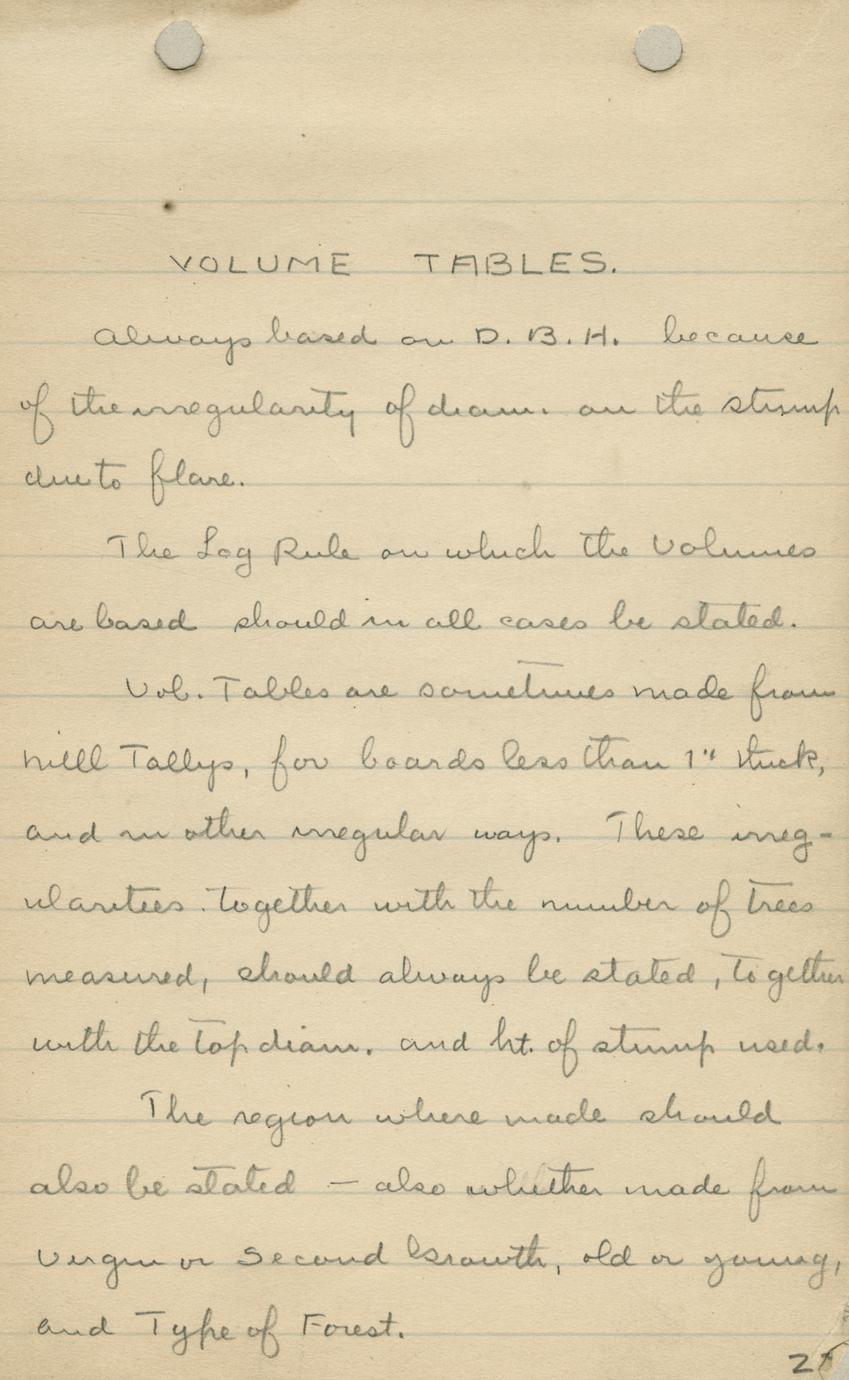 VOLUME TABLES.
Always based on D.B.H. because
of the irregularity of diam. on the stump
due to flare.
The Log Rule on which the Volumes
are based should in all cases be stated.
Vol. Tables are sometimes made from
Mill Tallys, for boards less than 1" thick,
and in other irregular ways. These irreg-
ularities together with the number of trees
measured, should always be stated, together
with the top diam. and ht. of stump used.
The region where made should
also be stated — also whether made from
Virgin or Second Growth, old or young,
and Type of Forest.